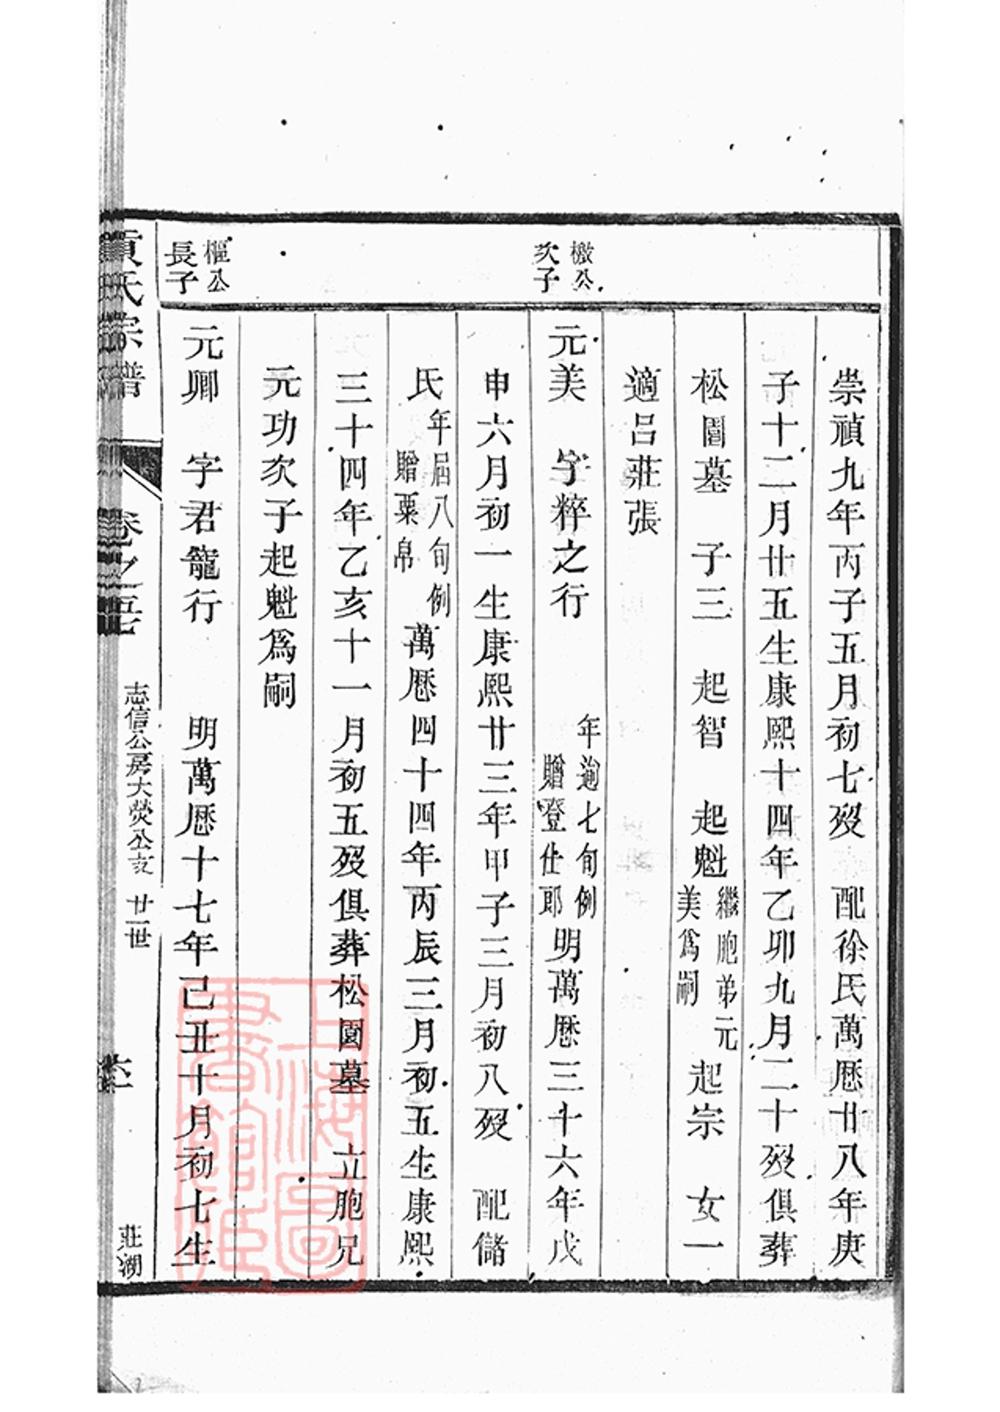 崇禎九年丙子五月初七歿　配徐氏萬曆廿八年庚
子十二月廿五生康熙十四年乙卯九月二十歿俱葬
松園墓　子三　起智　起魁繼胞弟元美爲嗣　起宗　女一
適呂莊張
檄公
次子
元美　字粹之行　年逾七旬例贈登仕郎明萬曆三十六年戊
申六月初一生康熙廿三年甲子三月初八歿　配儲
氏年屆八旬例贈粟帛萬曆四十四年丙辰三月初五生康熙
三十四年乙亥十一月初五歿俱葬松園墓　立胞兄
元功次子起魁爲嗣
樞公
長子
元卿　字君寵行　明萬曆十七年己丑十月初七生
氏宗譜
卷之
志信公房大熒公支　廿一世
莊溯
上海圖書館藏